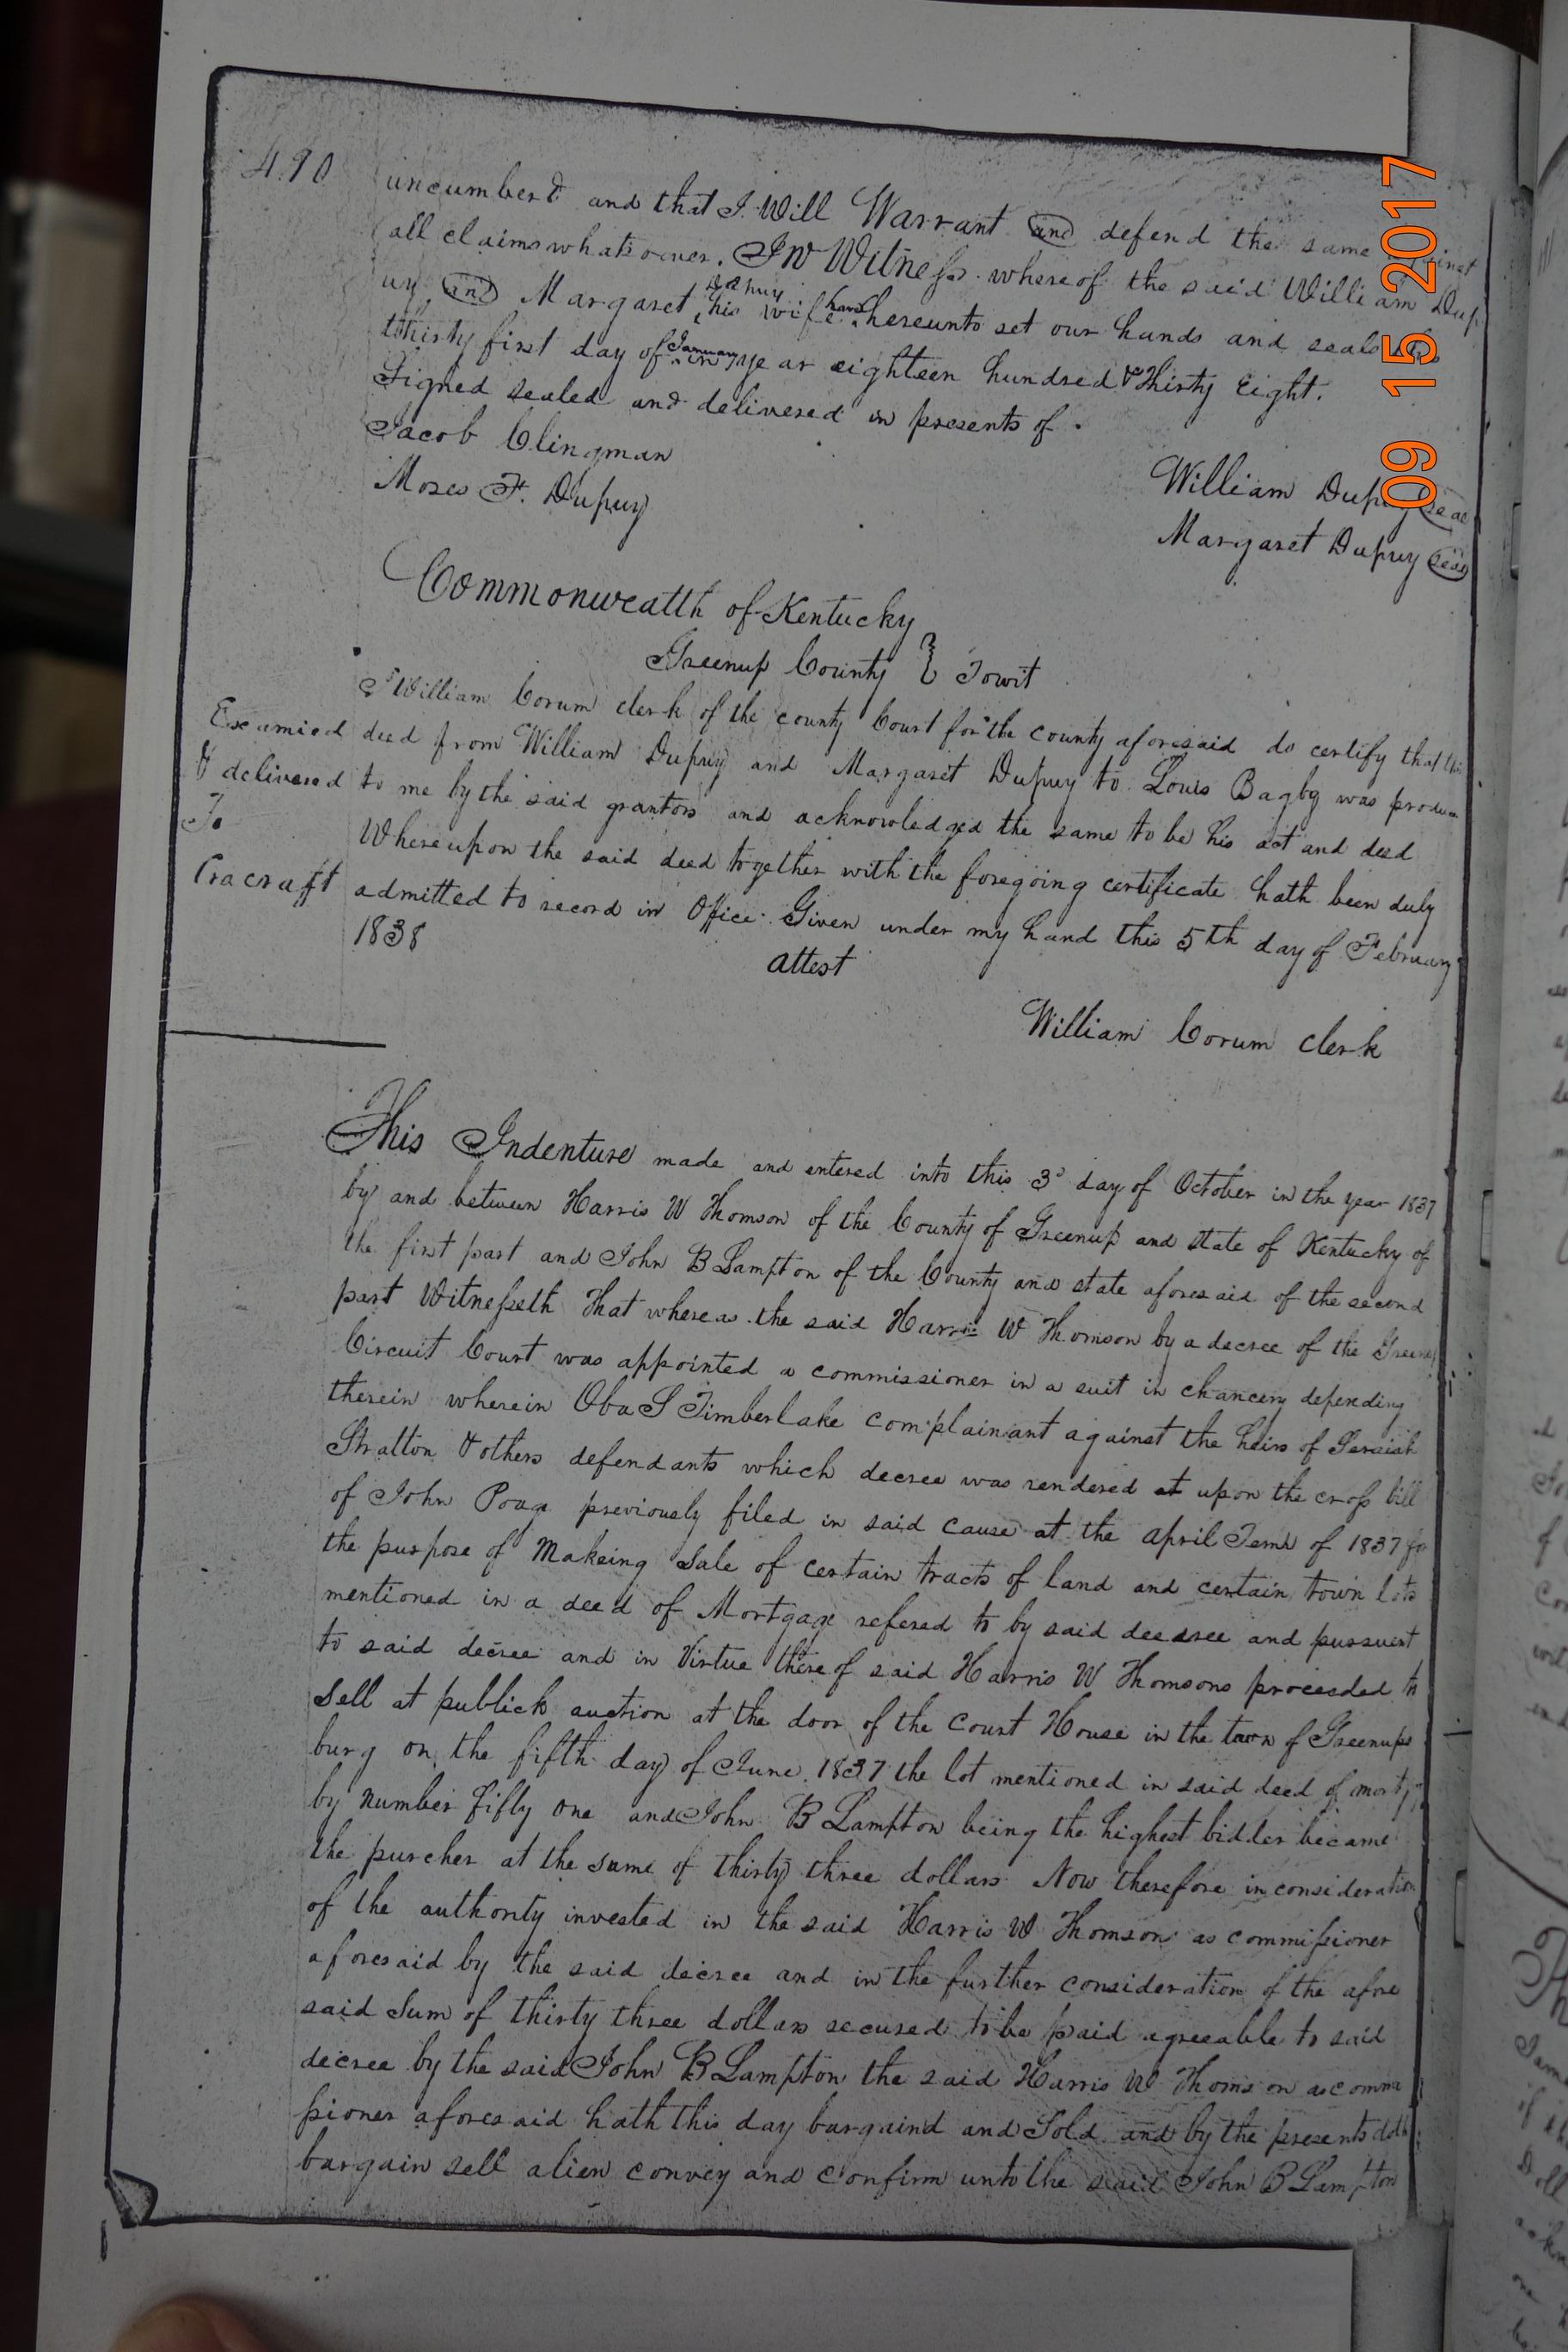 490
uncumberd and that I Will Warrant and defend the same
all claims whatsoever. In Witness whereof the said William Dup
uy and Margaret Dupuy his wife have hereunto set our hands and seals
thirty first day of January in year eighteen hundred & Thirty Eight.
Signed sealed and delivered in presents of.
Jacob Clingman
Moses F. Dupuy
William Dupuy seal
Margaret Dupuy seal
Commonwealth of Kentucky
Greenup County } Towit
I William Corum clerk of the county Court for the county aforesaid do certify that this
deed from William Dupuy and Margaret Dupuy to Louis Bagby was produce
to me by the said grantors and acknowledged the same to be his act and deed
Whereupon the said deed together with the foregoing certificate hath been duly
admitted to record in Office. Given under my hand this 5th day of February
1838
attest
William Corum clerk
Examied
& delivered
To
Cracraft
This Indenture made and entered into this 3d day of October in the year 1837
by and between Harris W Thomson of the County of Greenup and state of Kentucky of
the first part and John B Lampton of the County and state aforesaid of the second
part Witnesseth That whereas the said Harris W Thomson by a decree of the Greenup
Circuit Court was appointed a commissioner in a suit in chancery depending
therein wherein Oba S Timberlake complainant against the heirs of
Stratton & others defendants which decree was rendered at upon the cross bill
of John Poage previously filed in said cause at the april Term of 1837 for
the purpose of Makeing Sale of certain tracts of land and certain town lots
mentioned in a deed of Mortgage refered to by said decree and pursuent
to said decree and in Virtue thereof said Harris W Thomsons proceeded to
Sell at publick auction at the door of the Court House in the town of Greenups
burg on the fifth day of June 1837 the lot mentioned in said deed of mortg
by number fifty one and John B Lampton being the highest bidder became
the purcher at the sume of thirty three dollars Now therefore in consideration
of the authority invested in the said Harris W Thomson as commissioner
aforesaid by the said decree and in the further consideration of the afore
said Sum of thirty three dollars secured to be paid agreeable to said
decree by the said John B Lampton the said Harris W Thomson as commi
ssioner aforesaid hath this day bargaind and Sold and by the presents doth
bargain sell alien convey and confirm unto the said John B Lampton
09 15 2017